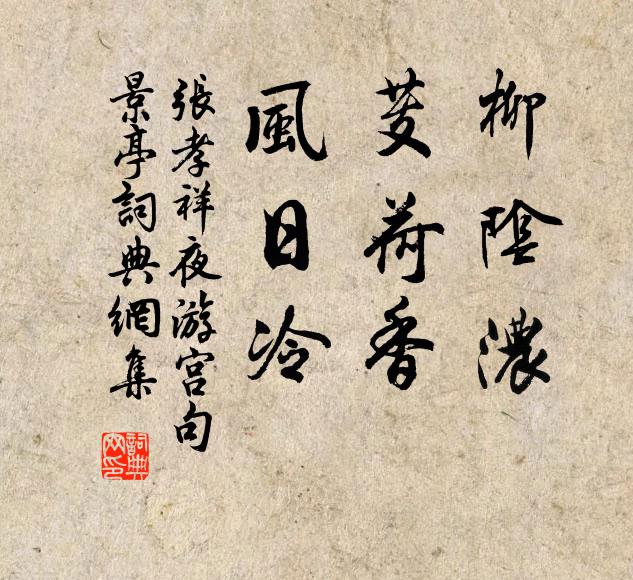 柳陰濃
芰荷香
風日冷
張孝祥夜游宮句
景亭詞典網集
詞典
網印